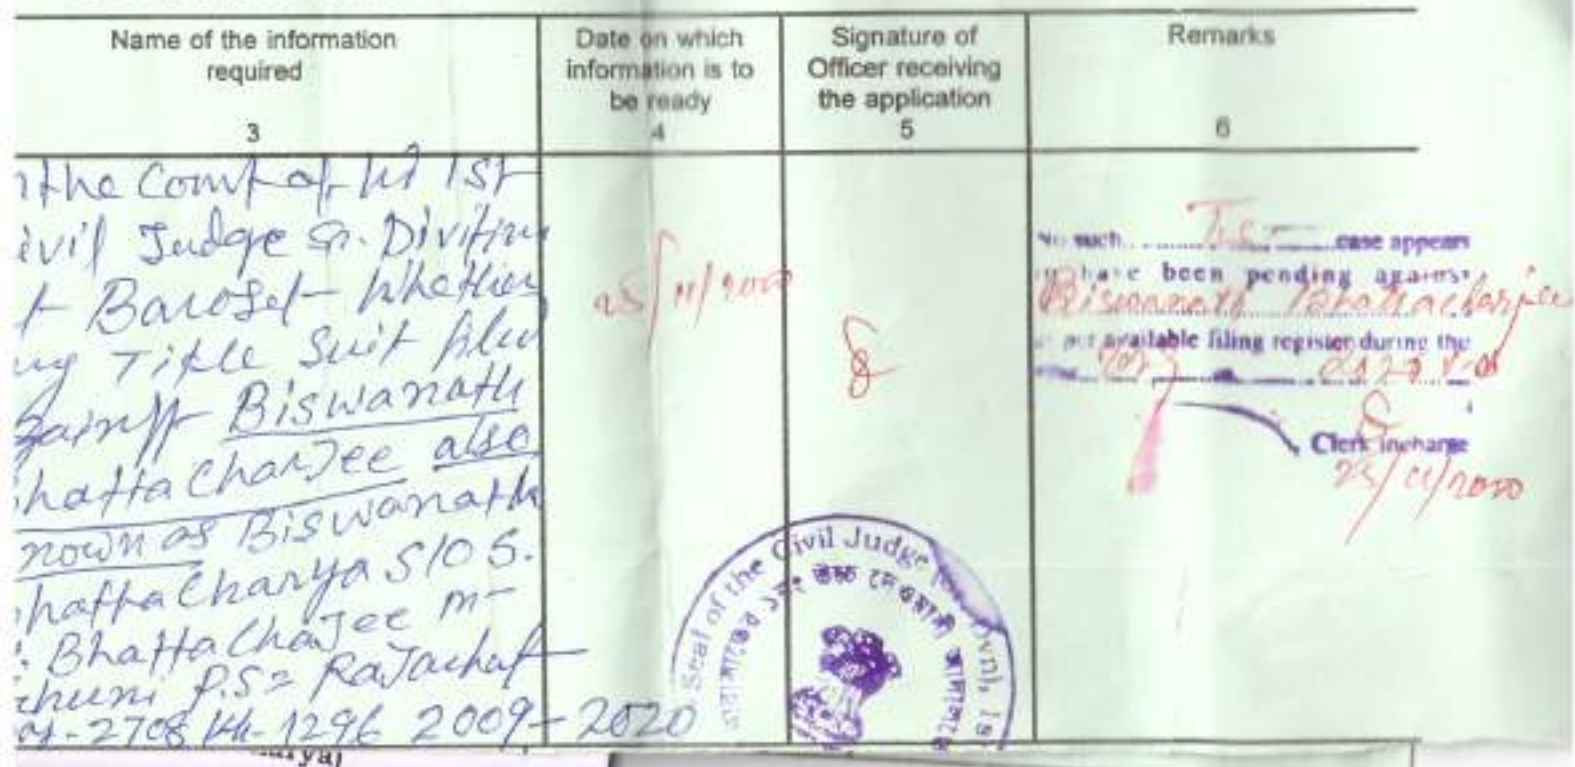 Name of the information
required
3
Date on which
information is to
be ready
4
Signature of
Officer receiving
the application
5
Remarks
6
the Court of 1st
ivil Judge Sr. Division
t Baraset Whether
Title Suit filed
Biswanath
hattacharjee also
nown as Biswanath
hattacharya S/O S.
Bhattacharjee m-
P.S= Rajarhat
2708 1296 2009-2020
25/11/2020
such T.S. case appears
have been pending against
Biswanath Bhattacharjee
available filing register during the
2020
Clerk incharge
25/11/2020
Seal of the Civil Judge